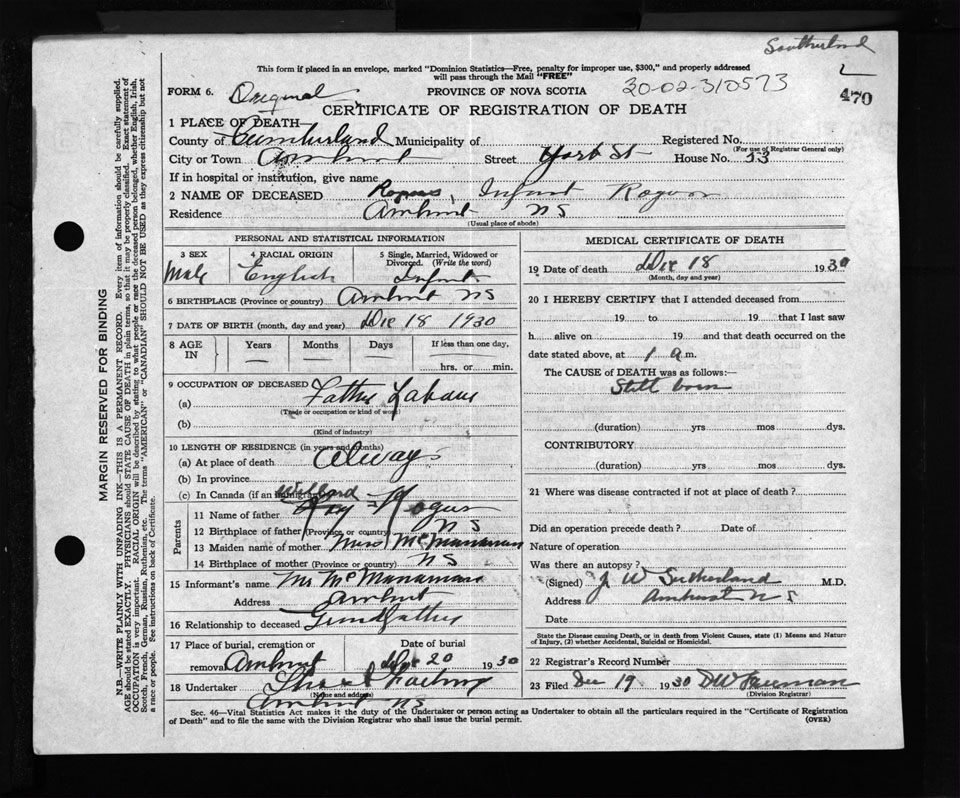 Southerland
This form if placed in an envelope, marked "Dominion Statistics—Free, penalty for improper use, $300," and properly addressed
will pass through the Mail "FREE"
FORM 6. Original PROVINCE OF NOVA SCOTIA 30-02-310573
470
CERTIFICATE OF REGISTRATION OF DEATH
1 PLACE OF DEATH—
County of Cumberland Municipality of Registered No.
(For use of Registrar General only)
City or Town Amherst Street York St House No. 33
If in hospital or institution, give name
2 NAME OF DECEASED Rogers, Infant Rogers
Residence Amherst NS
(Usual place of abode)
PERSONAL AND STATISTICAL INFORMATION
3 SEX 4 RACIAL ORIGIN 5 Single, Married, Widowed or
Divorced. (Write the word)
Male English Infant
6 BIRTHPLACE (Province or country) Amherst NS
7 DATE OF BIRTH (month, day and year) Dec 18 1930
8 AGE IN Years Months Days If less than one day,
hrs. or min.
9 OCCUPATION OF DECEASED Father
(a)
(Trade or occupation or kind of work)
(b)
(Kind of industry)
10 LENGTH OF RESIDENCE (in years and months)
(a) At place of death Always
(b) In province
(c) In Canada (if an immigrant)
Parents
11 Name of father Ray Rogers
12 Birthplace of father (Province or country) NS
13 Maiden name of mother Miss McManaman
14 Birthplace of mother (Province or country) NS
15 Informant's name Mr McManaman
Address Amherst
16 Relationship to deceased Grandfather
17 Place of burial, cremation or Date of burial
removal Amherst Dec 20 1930
18 Undertaker
(Name and address)
Amherst NS
MEDICAL CERTIFICATE OF DEATH
19 Date of death Dec 18 1930
(Month, day and year)
20 I HEREBY CERTIFY that I attended deceased from
19 to 19 that I last saw
h alive on 19 and that death occurred on the
date stated above, at 1 a.m.
The CAUSE of DEATH was as follows:
Still born
(duration) yrs mos dys.
CONTRIBUTORY
(duration) yrs mos dys.
21 Where was disease contracted if not at place of death?
Did an operation precede death? Date of
Nature of operation
Was there an autopsy?
(Signed) J W Sutherland M.D.
Address Amherst N S
Date
State the Disease causing Death, or in death from Violent Causes, state (1) Means and Nature
of Injury, (2) whether Accidental, Suicidal or Homicidal.
22 Registrar's Record Number
23 Filed Dec 19 1930 DW Freeman
(Division Registrar)
Sec. 46—Vital Statistics Act makes it the duty of the Undertaker or person acting as Undertaker to obtain all the particulars required in the "Certificate of Registration
of Death" and to file the same with the Division Registrar who shall issue the burial permit.
(OVER)
MARGIN RESERVED FOR BINDING
N.B.—WRITE PLAINLY WITH UNFADING INK—THIS IS A PERMANENT RECORD. Every item of information should be carefully supplied.
AGE should be stated EXACTLY. PHYSICIANS should STATE CAUSE OF DEATH in plain terms, so that it may be properly classified. Exact statement of
OCCUPATION is very important. RACIAL ORIGIN will be described by stating to what people or race the deceased person belonged, whether English, Irish,
Scotch, French, German, Russian, Ruthenian, etc. The terms "AMERICAN" or "CANADIAN" SHOULD NOT BE USED as they express citizenship but not
a race or people. See instructions on back of Certificate.